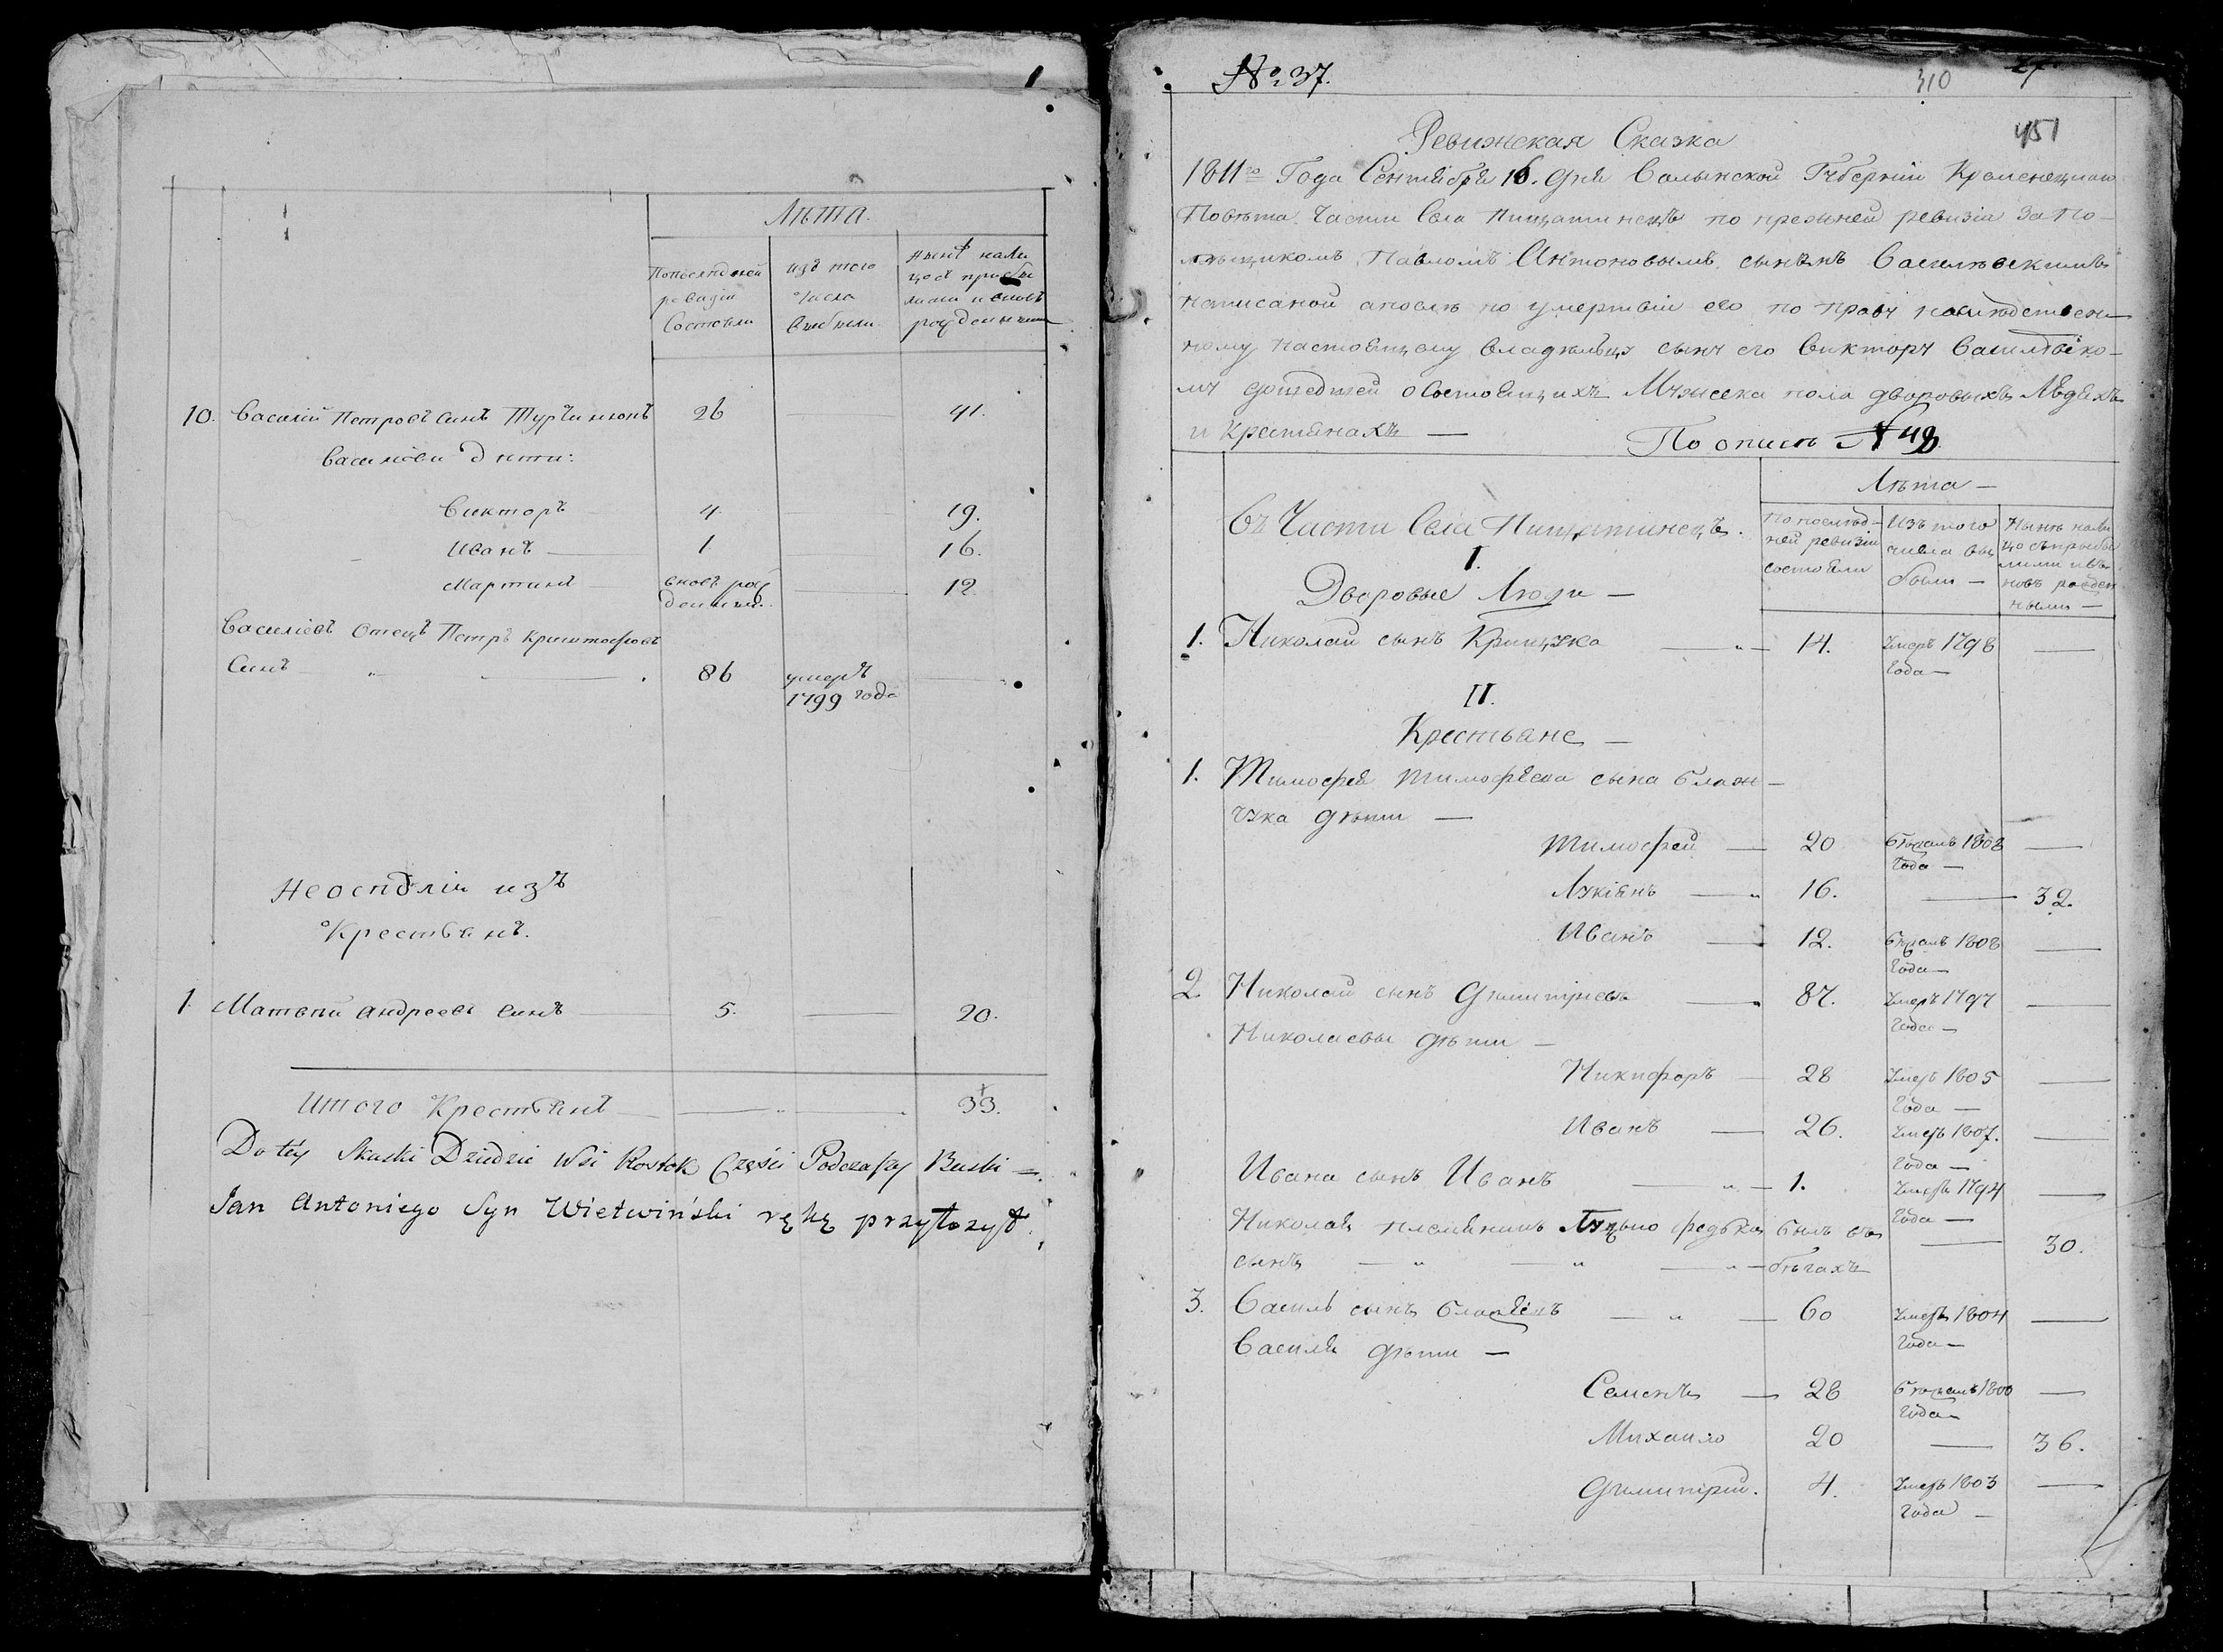 1
Лѣта.
Попослѣдней ревизіи Состояли
изъ того Числа Выбыли
нынѣ нали цо съ прибы лыми и вновь рожденными
10. Василій Петровъ Сынъ Турчинюкъ 26 — 41.
Василіеви дѣти:
Викторъ 4. — 19.
Иванъ 1. — 16.
Мартинъ вновь рож денный. — 12.
Василіевъ Отецъ Петръ Криштофовъ
Сынъ 86 умеръ 1799 года —
Неоспѣлія изъ
Крестьянъ.
1 Матвѣй Андреевъ Сынъ 5. — 20.
Итого Крестьянъ — 33.
Do téy Skaski Dziedzic Wsi Rostok Części Podczaszy Buski =
Jan Antoniego Syn Wietwiński rękę przyłożył.
№ 37.
310 27
451
Ревижская Сказка
1811го Года Сентября 16. дня Волынской Губерніи Кременецкого
Повѣта Части Села Пищатинецъ по прежней ревизіи За по-
мѣщикомъ Павломъ Антоновымъ сыномъ Василѣвскимъ
написаной апослѣ по умертвіи его по праву наслѣдствен-
ному настоящому владѣльцу сыну его Виктору Василѣвско-
му дошедшей о Состоящихъ Мужеска пола дворовыхъ Людяхъ
и Крестянахъ — По описѣ № 48
Лѣта —
По послѣд- ней ревизіи состояли
Изъ того числа вы были —
Нынѣ нали цо съ прибы лими и въ новь рожден ными —
Въ Части Села Пищатинецъ.
I.
Дворовые Люди —
1. Николай сынъ Крищука — 14. Умеръ 1798 Года — —
II.
Крестьяне —
1. Тимофея Тимофѣева сына Блаж-
чука дѣти —
Тимофей — 20 бѣжалъ 1808 Года — —
Лукіянъ — 16. — 32.
Иванъ — 12. бѣжалъ 1808 Года — —
2. Николай сынъ Дмитріевъ — 87. Умеръ 1797 Года — —
Николаевы дѣти —
Никифоръ — 28 Умеръ 1805 Года — —
Иванъ — 26. Умеръ 1807. Года — —
Ивана сынъ Иванъ — 1. Умеръ 1794 Года — —
Николая племянникъ Луцько федька былъ въ
сынъ — бѣгахъ — 30.
3. Василь сынъ — 60 Умеръ 1804 Года — —
Василя дѣти —
Семенъ — 28 бѣжалъ 1800 Года — —
Михайло 20 — 36.
Дмитрій. 4. Умеръ 1803 Года — —